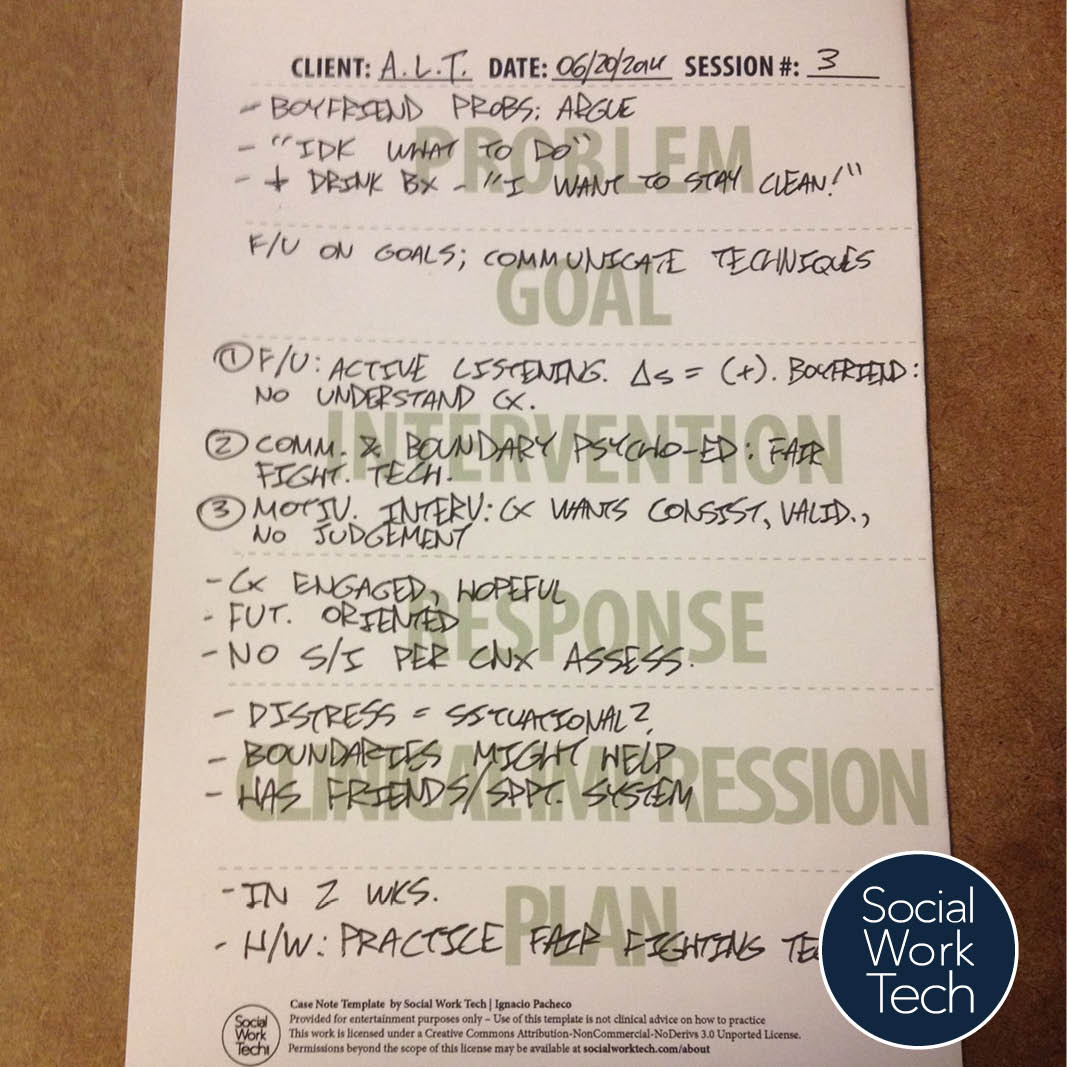 CLIENT: A.L.T. DATE: 06/20/2014 SESSION #: 3
- BOYFRIEND PROBS: ARGUE
PROBLEM
- "IDK WHAT TO DO"
- + DRINK BX - "I WANT TO STAY CLEAN!"
F/U ON GOALS; COMMUNICATE TECHNIQUES
GOAL
① F/U: ACTIVE LISTENING. Δs = (+). BOYFRIEND:
NO UNDERSTAND CX.
INTERVENTION
② COMM. & BOUNDARY PSYCHO-ED: FAIR
FIGHT. TECH.
③ MOTIV. INTERV: CX WANTS CONSIST, VALID.,
NO JUDGEMENT
- CX ENGAGED, HOPEFUL
- FUT. ORIENTED
RESPONSE
- NO S/I PER CNX ASSESS.
- DISTRESS = SITUATIONAL?
- BOUNDARIES MIGHT HELP
CLINICAL IMPRESSION
- HAS FRIENDS/SPPT. SYSTEM
- IN 2 WKS.
PLAN
- H/W: PRACTICE FAIR FIGHTING TE
Social
Work
Tech
Case Note Template by Social Work Tech | Ignacio Pacheco
Provided for entertainment purposes only – Use of this template is not clinical advice on how to practice
This work is licensed under a Creative Commons Attribution-NonCommercial-NoDerivs 3.0 Unported License.
Permissions beyond the scope of this license may be available at socialworktech.com/about
Social
Work
Tech